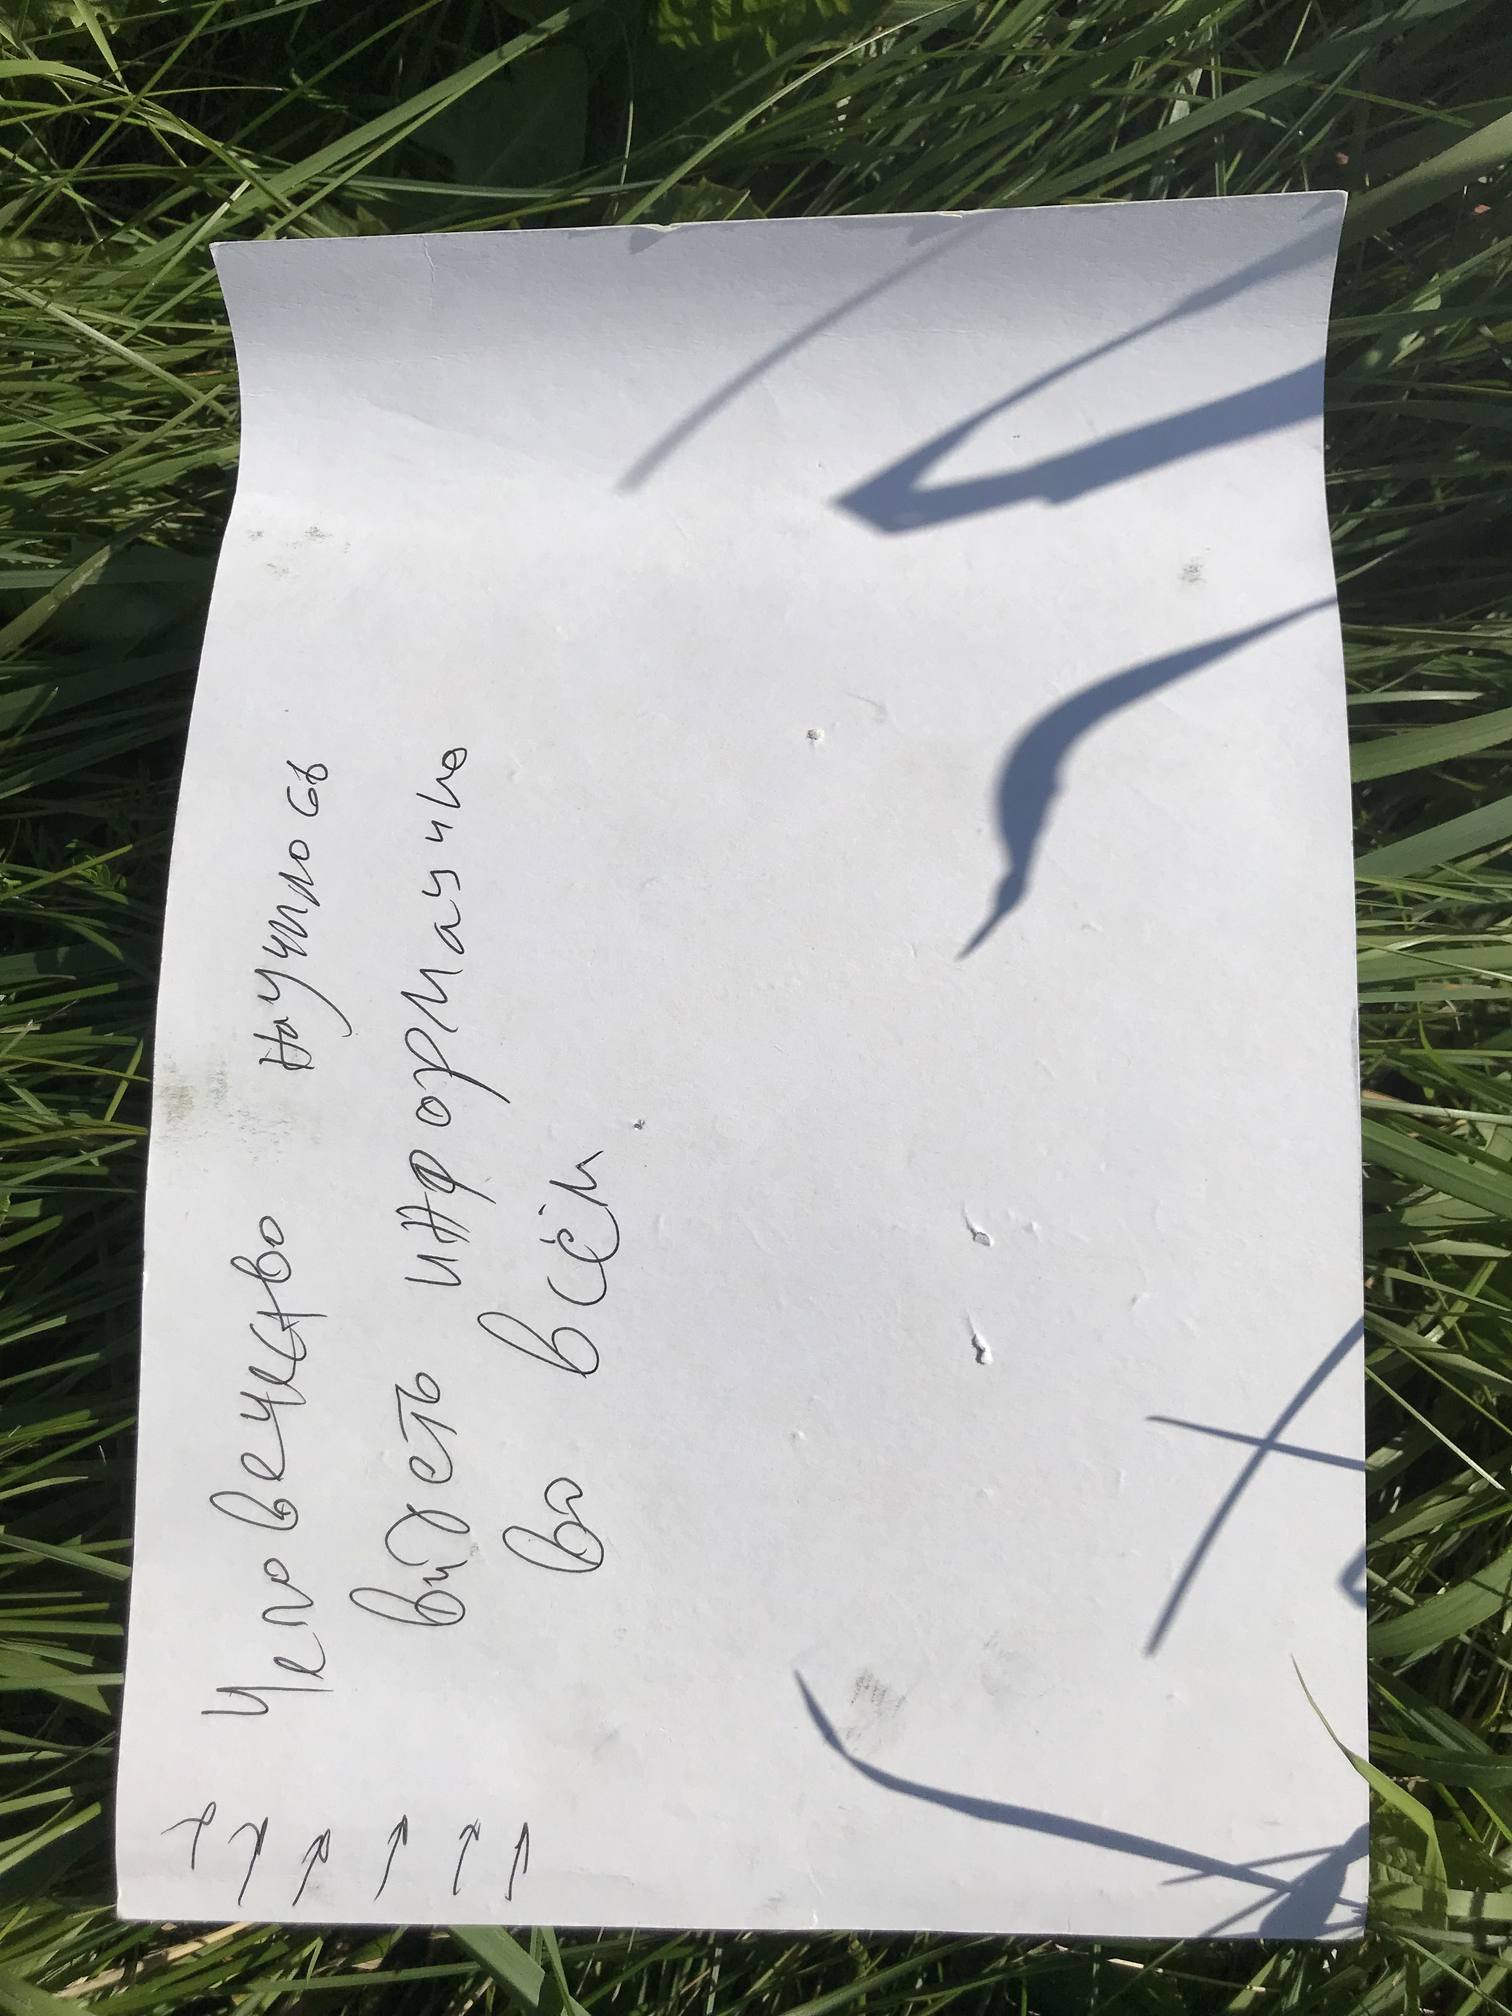 Человечество научилось
видеть информацию
во всём